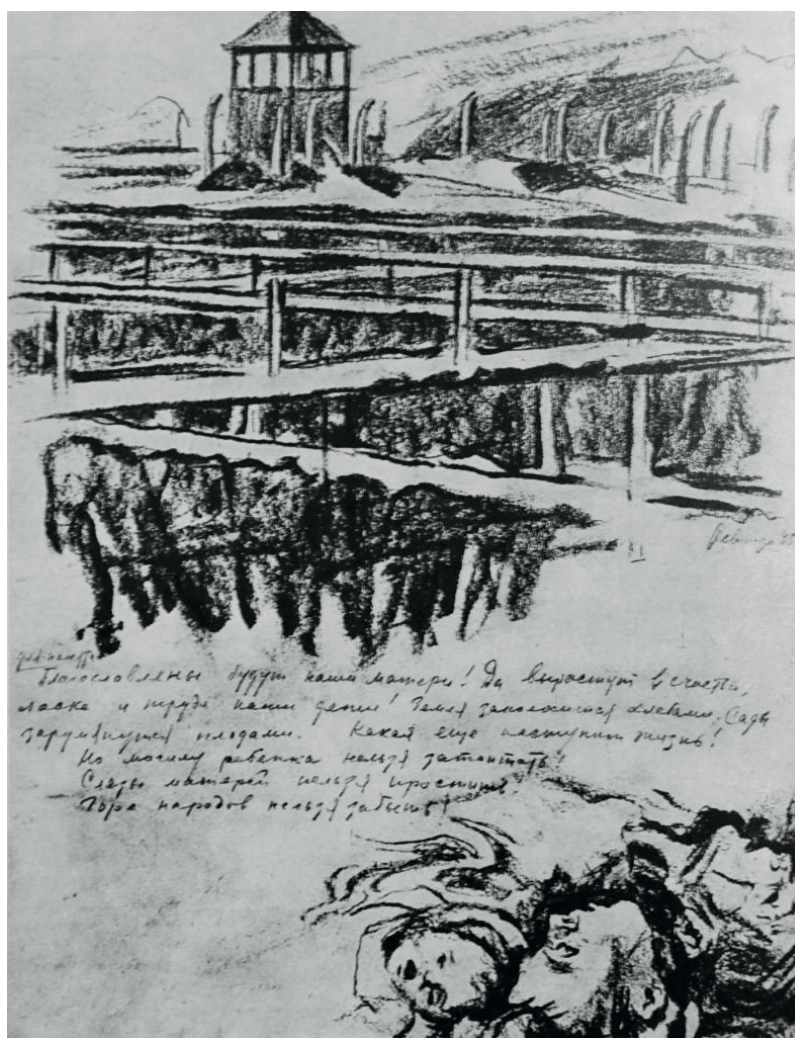 Благословлены будут наши матери! Да выростут в счастьи,
ласке и труде наши дети! Земля заколосится хлебами, Сады
зарумянутся плодами. Какая еще наступит жизнь!
Но могилу ребенка нельзя затоптать!
Слезы матерей нельзя простить!
Горе народов нельзя забыть!